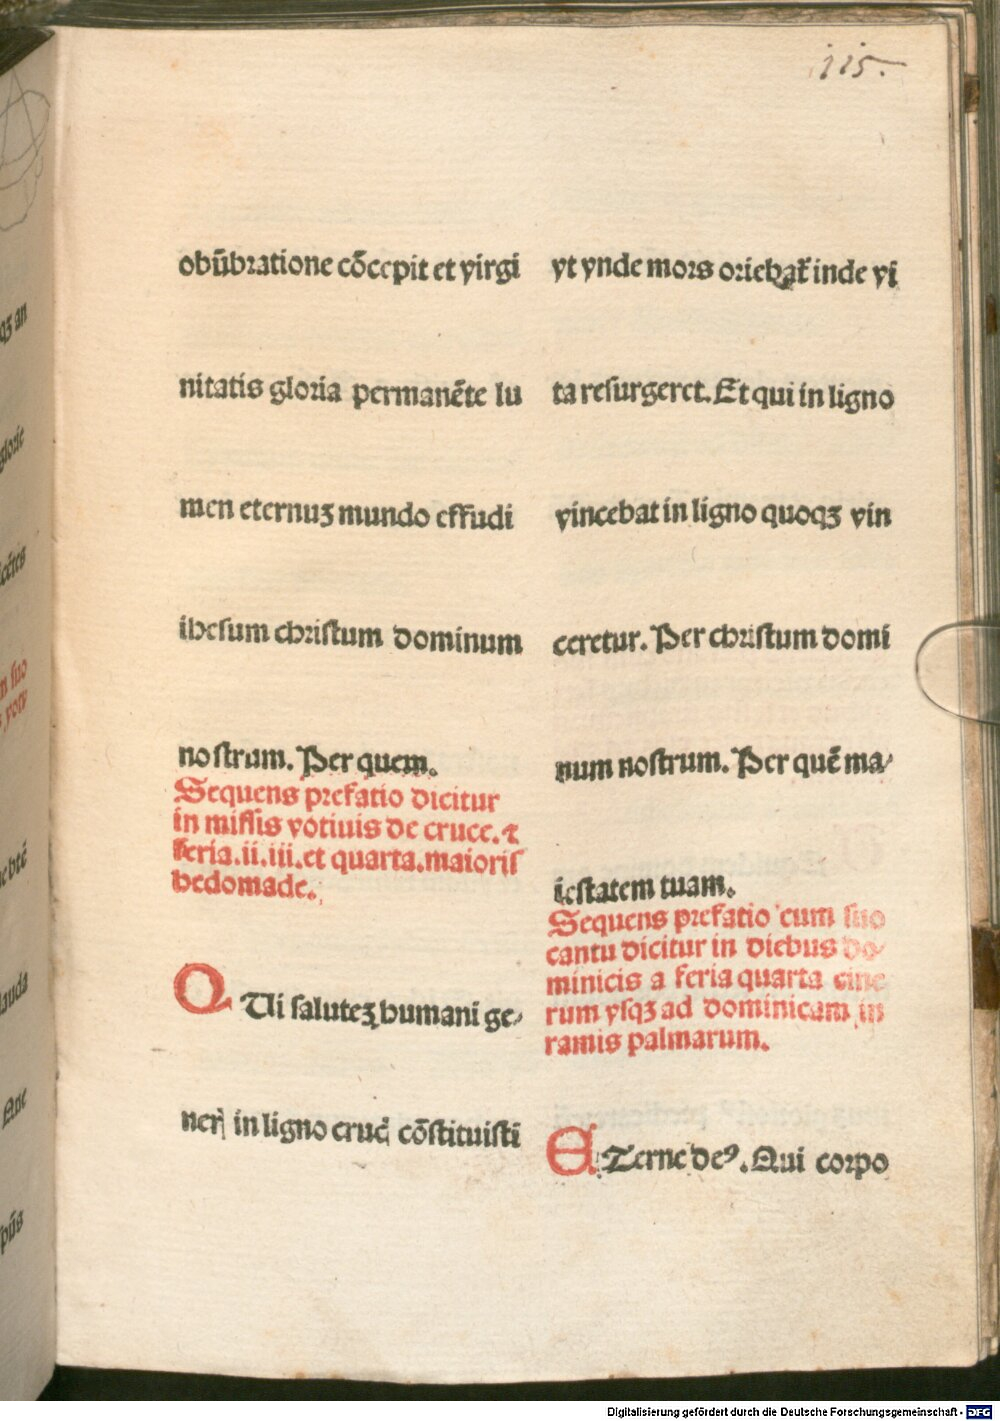 115.
obūbratione cōcepit et virgi
nitatis gloria permanēte lu
men eternuʒ mundo effudi
ihesum christum dominum
nostrum. Per quem.
Sequens prefatio dicitur
in missis votiuis de cruce. ⁊
feria.ii.iii.et quarta.maioris
hedomade.
QUi saluteʒ humani ge⸗
neris in ligno crucis cōstituisti
vt vnde mors oriebat᷑ inde vi
ta resurgeret. Et qui in ligno
vincebat in ligno quoqʒ vin
ceretur. Per christum domi
num nostrum. Per quē ma⸗
iestatem tuam.
Sequens prefatio cum suo
cantu dicitur in diebus do⸗
minicis a feria quarta cine
rum vsqʒ ad dominicam in
ramis palmarum.
ETerne deꝰ. Qui corpo
qʒ an
glorie
lauda
Ane
Digitalisierung gefördert durch die Deutsche Forschungsgemeinschaft - DFG